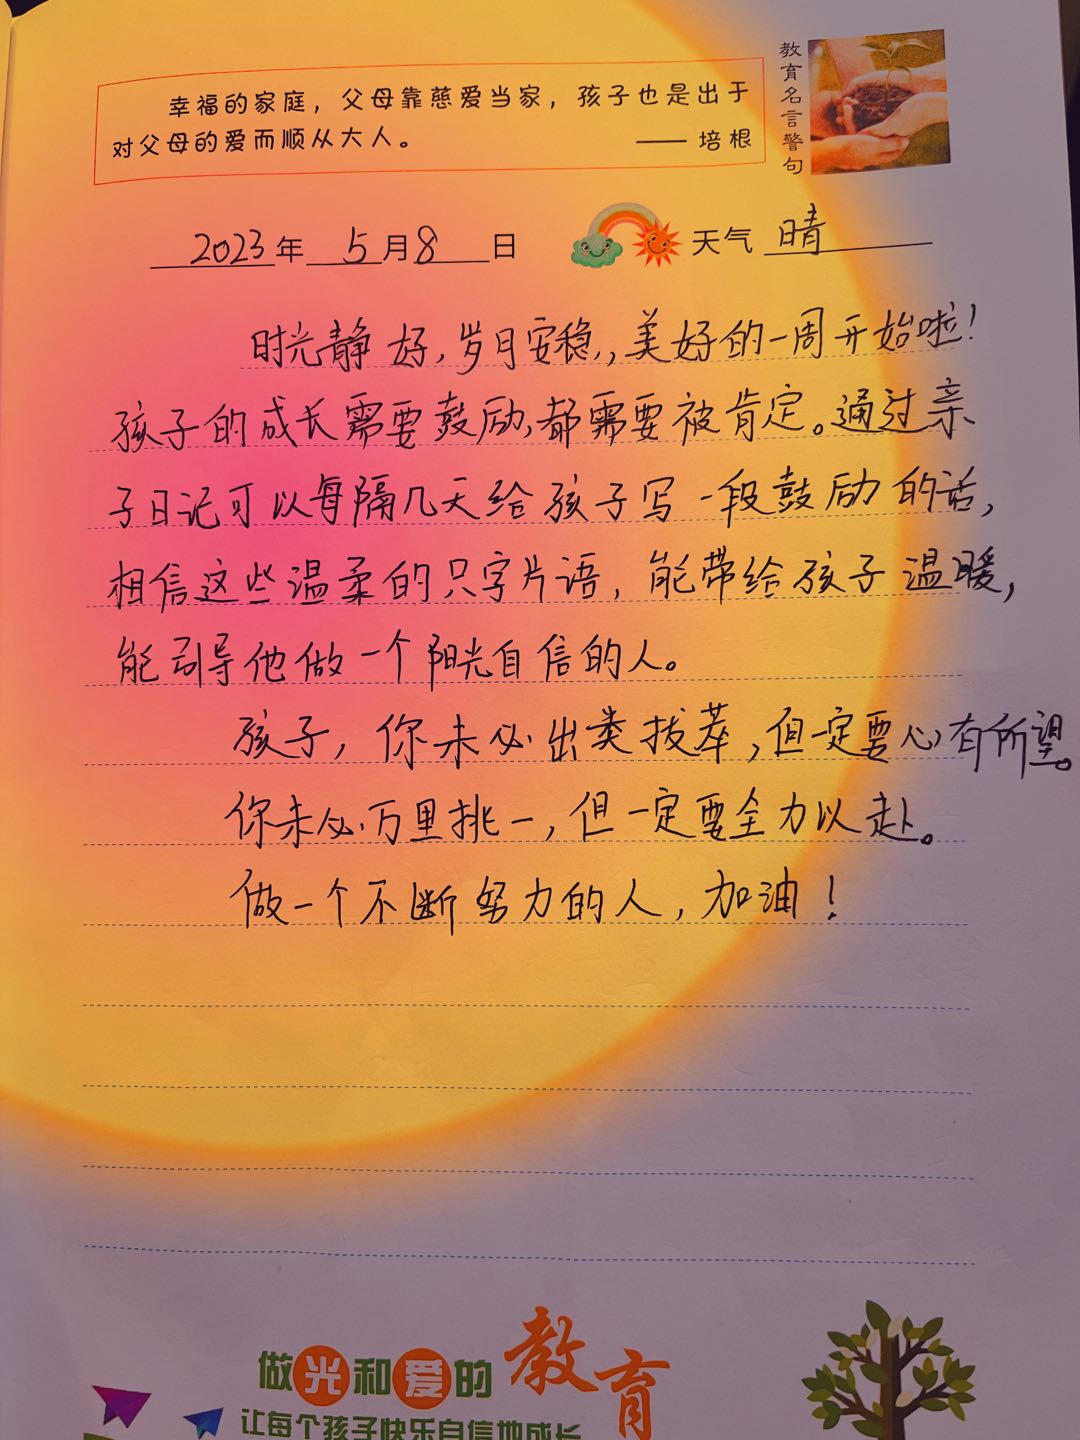 教育名言警句
幸福的家庭，父母靠慈爱当家，孩子也是出于
对父母的爱而顺从大人。 —— 培根
2023年 5月8 日 天气 晴
时光静好,岁月安稳,,美好的一周开始啦!
孩子的成长需要鼓励,都需要被肯定。通过亲
子日记可以每隔几天给孩子写一段鼓励的话,
相信这些温柔的只字片语,能带给孩子温暖,
能引导他做一个阳光自信的人。
孩子,你未必出类拔萃,但一定要心有所望。
你未必万里挑一,但一定要全力以赴。
做一个不断努力的人,加油!
做光和爱的教育
让每个孩子快乐自信地成长